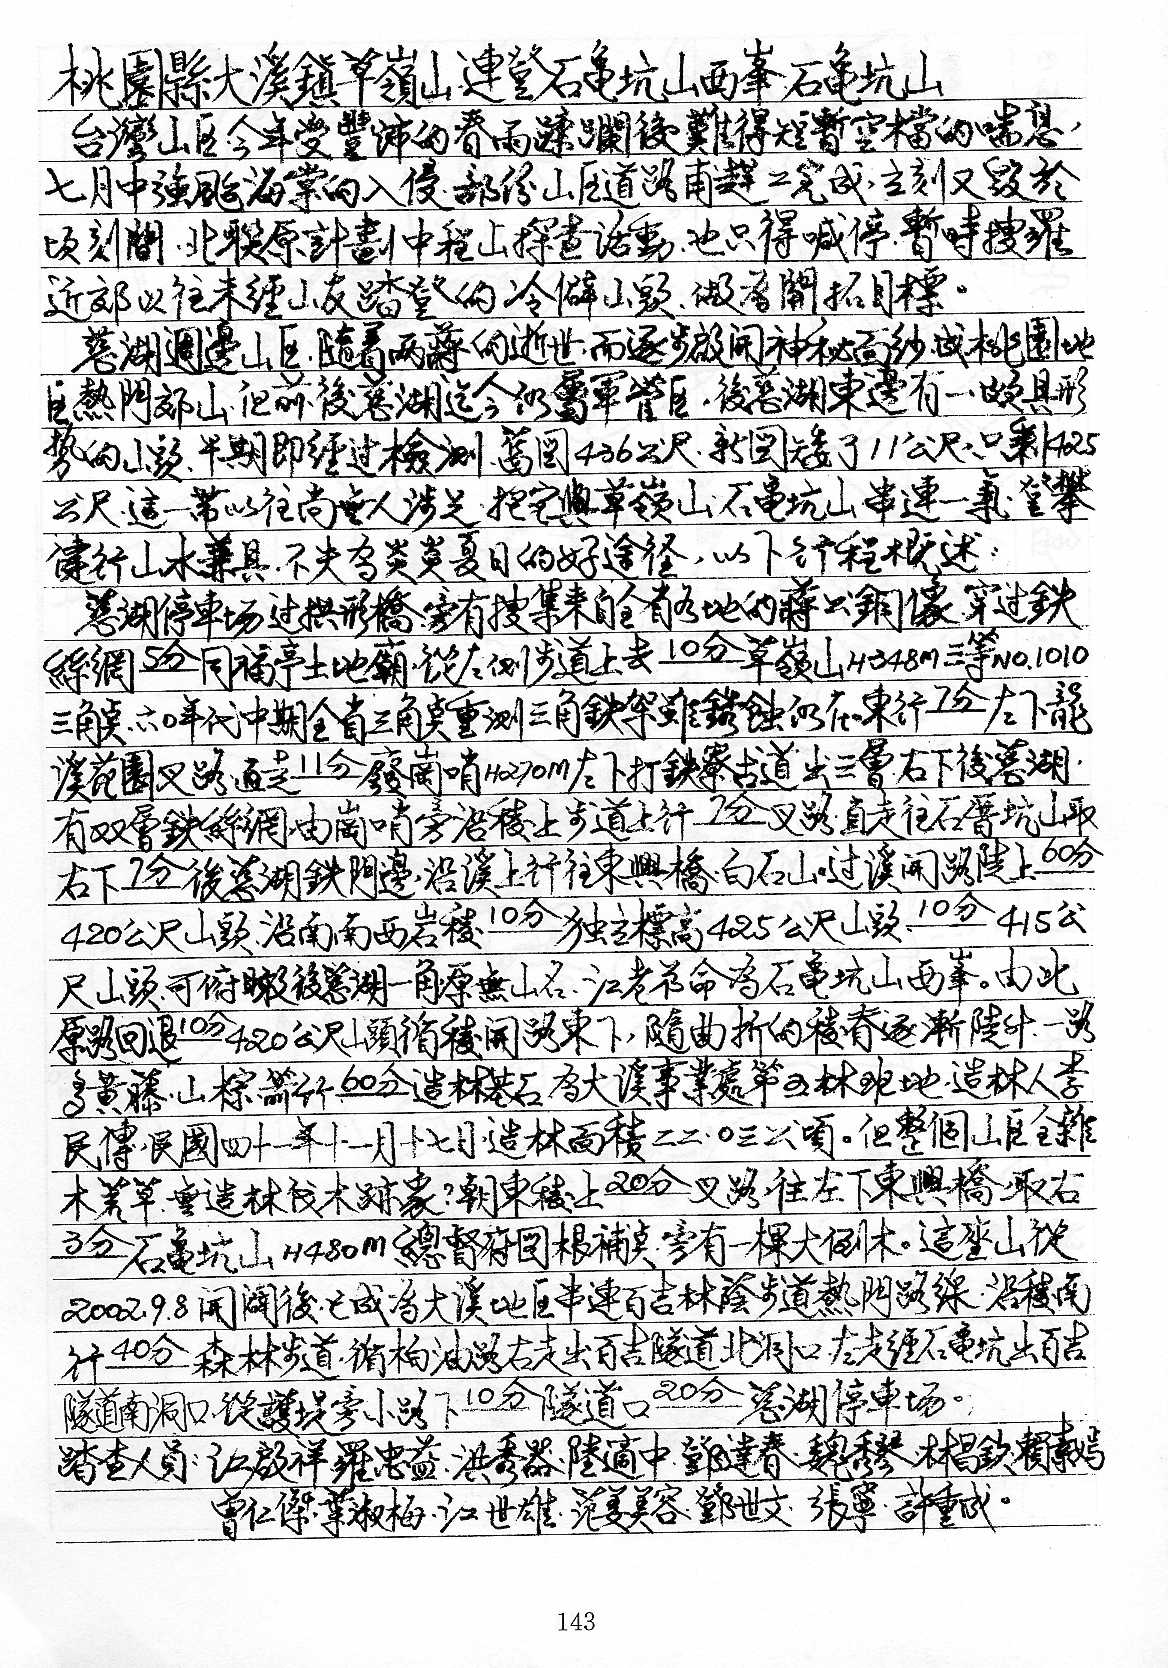 桃園縣大溪鎮草嶺山.連登石亀坑山西峯.石亀坑山
台灣山区今年受豐沛的春雨蹂躪後難得短暫空檔的喘息,
七月中強颱海棠的入侵.部份山区道路甫趕工完成.立刻又毀於
頃刻間.北联原計劃中程山探查活動.也只得喊停.暫時搜羅
近郊以往未經山友踏登的冷僻山頭.做為開拓目標。
慈湖週邊山区.隨着兩蔣的逝世.而逐步啟開神秘面紗.成桃園地
区熱門郊山.但前.後慈湖迄今仍屬軍營区.後慈湖東邊有一頗具形
勢的山頭.早期即經过檢測.舊図436公尺.新図矮了11公尺.只剩425
公尺.這一带以往尚無人涉足.把它與草嶺山.石亀坑山串連一氣.登攀
健行山水兼具.不失為炎炎夏日的好途徑.以下行程概述:
慈湖停車场过拱形橋.旁有搜集來自全省各地的蔣公銅像.穿过鉄
絲網5分同福亭土地廟.從左側步道上去10分草嶺山H348M三等NO.1010
三角点.六0年代中期全省三角点重測三角鉄架雖銹蝕仍在.東行7分左下龍
溪花園叉路.直走11分廢崗哨H270M左下打鉄寮古道出三層.右下後慈湖.
有双層鉄絲網.由崗哨旁沿稜上步道上行7分叉路.直走往石厝坑山取
右下7分後慈湖鉄門邊.沿溪上行往東興橋.白石山.过溪開路陡上60分
420公尺山頭.沿南南西岩稜10分独立標高425公尺山頭.10分415公
尺山頭.可俯瞰後慈湖一角.原無山名.江老爷命為石亀坑山西峯。由此
原路回退10分420公尺山頭循稜開路東下,隨曲折的稜脊逐漸陡升.一路
多黃藤.山棕.箭竹.60分造林基石為大溪事業處第五林班地.造林人李
民傳.民國四十一年十一月十七日.造林面積二二.0三公頃。但整個山区全雜
木芒草.無造林伐木跡象?朝東稜上20分叉路.往左下東興橋.取右
3分石亀坑山H480M總督府図根補点.旁有一棵大倒木。這座山從
2002.9.8開闢後.已成為大溪地区串連百吉林蔭步道熱門路線.沿稜南
行40分森林步道.循柏油路右走出百吉隧道北洞口.左走經石亀坑出百吉
隧道南洞口.從護堤旁小路下10分隧道口20分慈湖停車场。
踏查人員:江啟祥.羅忠益.洪秀器.陸適中.鄧達春.魏秀琴.林昌鉄.賴素嫣
曾仁傑.葉淑梅.江世雄.范姜美容.鄧世文.張寧.許重成。
143